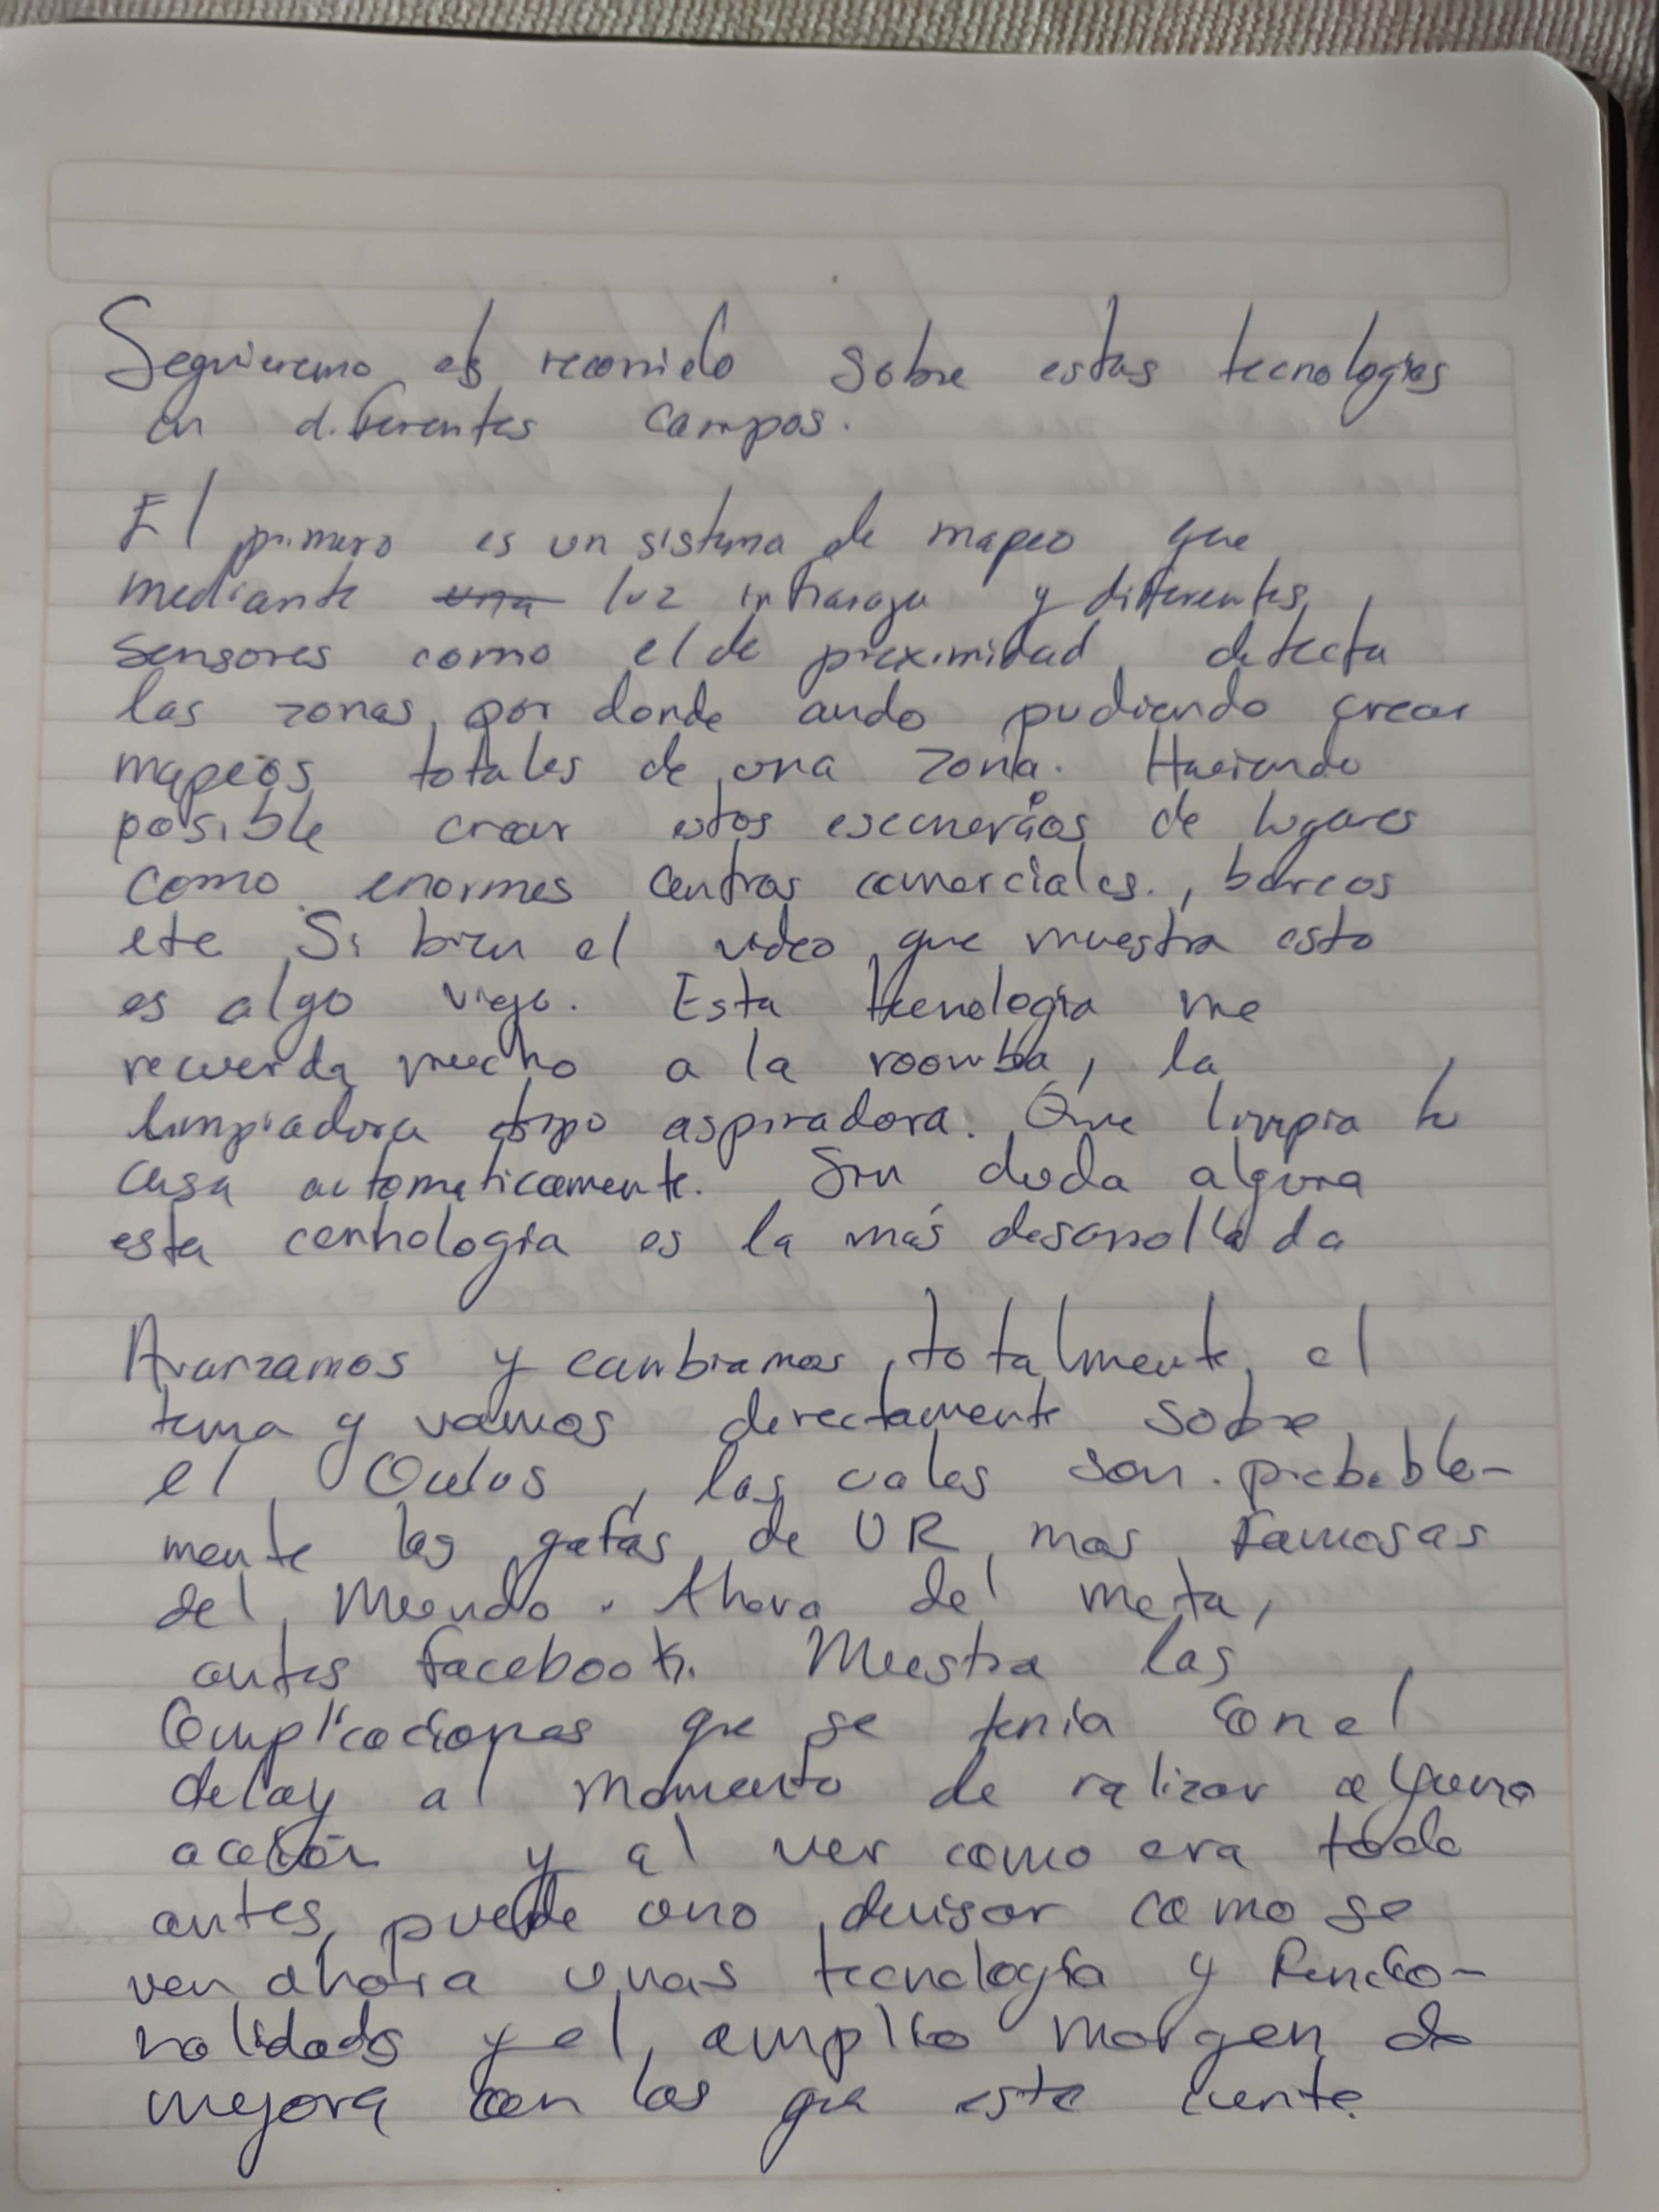 Seguieremo el recorrido sobre estas tecnologias
en diferentes campos.
El primero es un sistema de mapeo que
mediante una luz infraroja y diferentes
sensores como el de proximidad, detecta
las zonas por donde ando pudiendo crear
mapeos totales de una zona. Haciendo
posible crear estos de lugares
como enormes centros comerciales., barcos
etc Si bien el video que muestra esto
es algo viejo. Esta tecnologia me
recuerda mucho a la roomba, la
limpiadora tipo aspiradora. Que limpia la
casa automaticamente. Sin duda alguna
esta cenhologia es la más desarrollada
Avanzamos y cambiamos totalmente el
tema y vamos derectamente sobre
el Oculus, las cales son probable-
mente las gafas de VR mas famosas
del Mundo. Ahora del meta,
antes facebook. Muestra las
Complicaciones que se tenia con el
delay al momento de ralizar alguna
acción y al ver como era todo
antes, puede uno divisar como se
ven ahora unas tecnologia y funcio-
nalidads y el amplio margen de
mejora con los que esta cuente